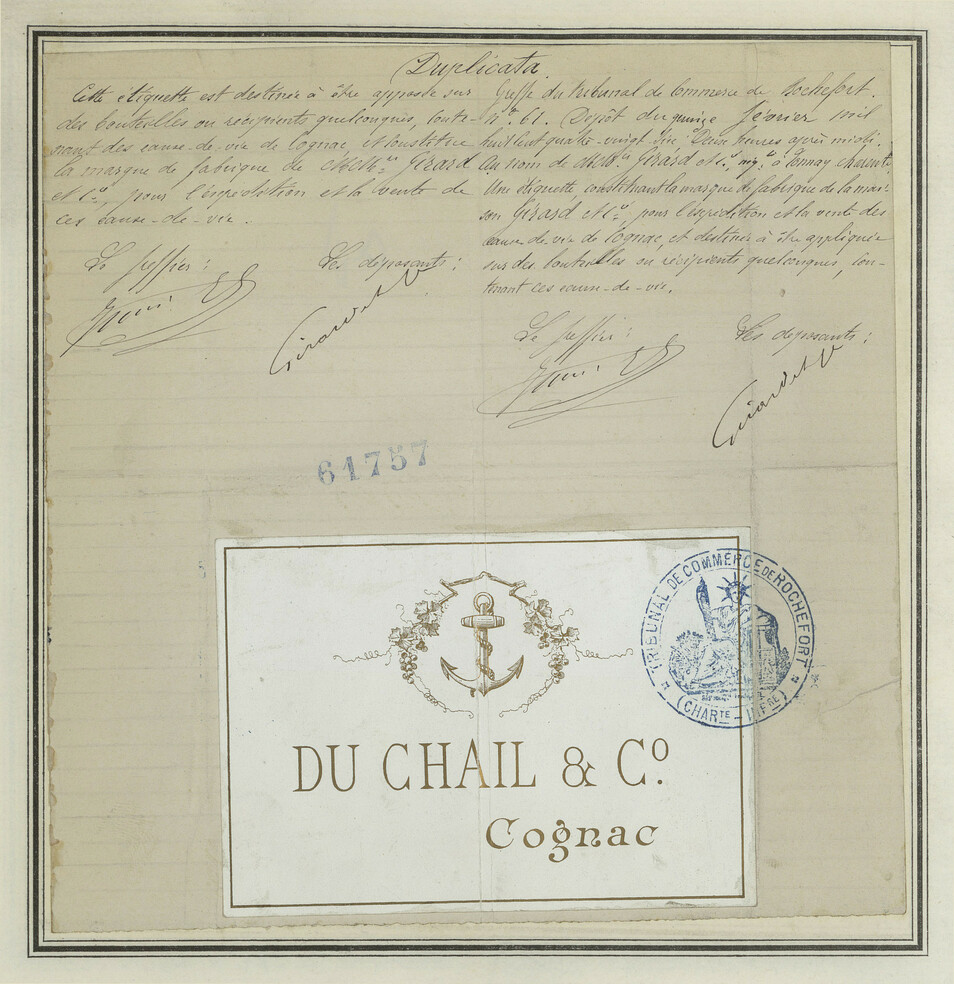 Duplicata.
Cette étiquette est destinée à être apposée sur
des bouteilles ou récipients quelconques, conte-
nant des eaux-de-vie de Cognac, et constitue
la marque de fabrique de MM. Girard
et Cie, pour l'expédition et la vente de
ces eaux-de-vie.
Le greffier :
Les déposants :
Girard et Cie
Greffe du tribunal de Commerce de Rochefort.
No 61. Dépôt du quinze février mil
huit cent quatre-vingt-dix, Deux heures après midi.
Au nom de MM. Girard et Cie, nég. à Tonnay Charente,
Une étiquette, constituant la marque de fabrique de la mai-
son Girard et Cie, pour l'expédition et la vente des
eaux-de-vie de Cognac, et destinée à être appliquée
sur des bouteilles ou récipients quelconques, con-
tenant ces eaux-de-vie.
Le greffier :
Les déposants :
Girard et Cie
61757
TRIBUNAL DE COMMERCE DE ROCHEFORT
(CHARTE-INFRE)
DU CHAIL & Co.
Cognac